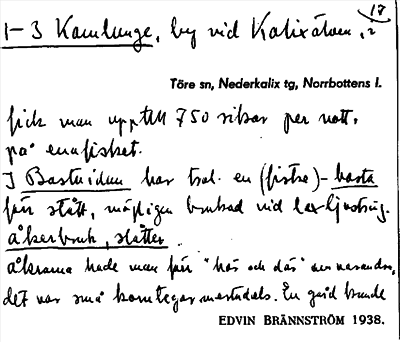 1-3 Kamlunge, by vid Kalixälven, 2
18
Töre sn, Nederkalix tg, Norrbottens l.
fick man upp till 750 sikar per natt.
på enafisket.
I Bastuidan har trol. en (fiske)-basta
för stått, möjligen brukad vid laxljustring.
åkerbruk, slåtter.
åkrarna hade man för "här och där" om varandra,
det var små korntegar mestadels. En gård kunde
EDVIN BRÄNNSTRÖM 1938.